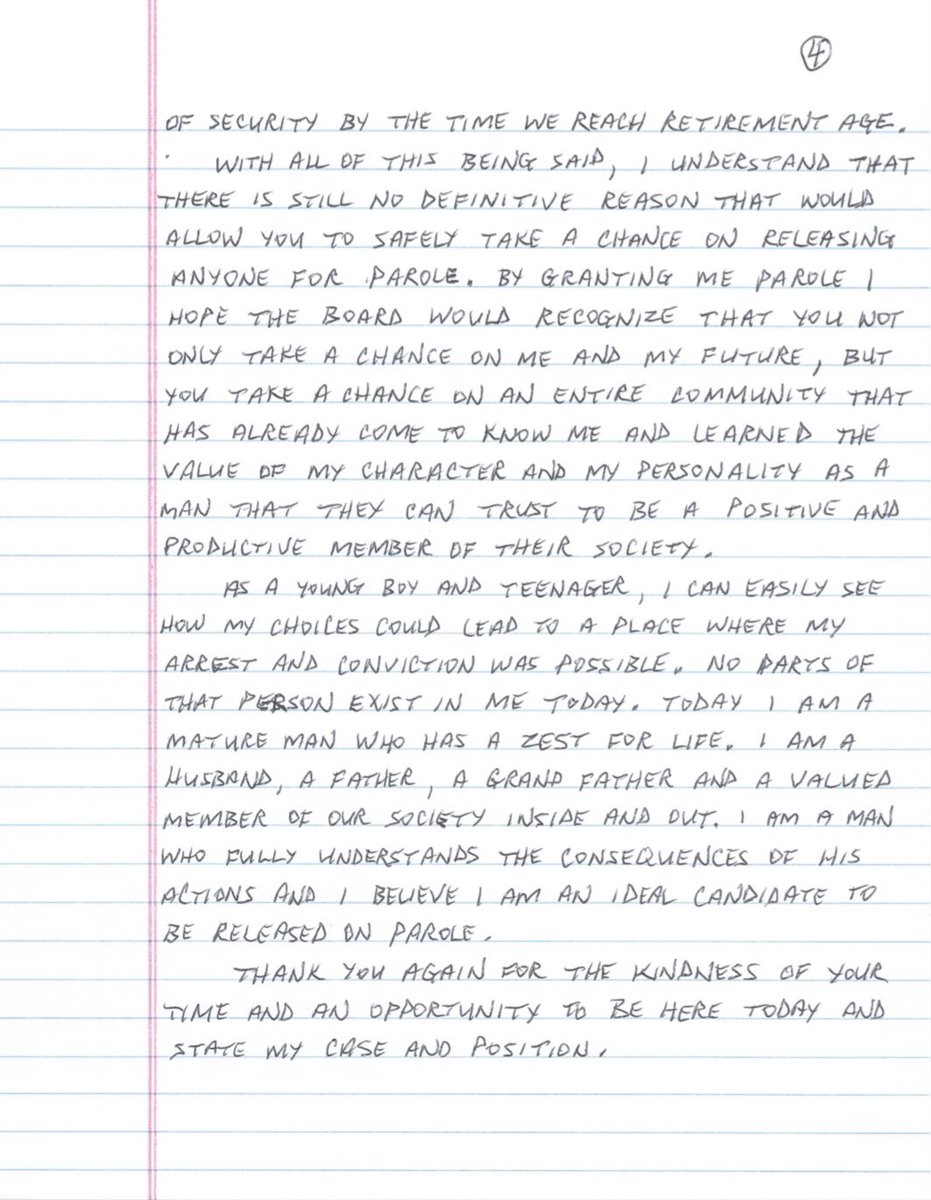 4
OF SECURITY BY THE TIME WE REACH RETIREMENT AGE.
WITH ALL OF THIS BEING SAID, I UNDERSTAND THAT
THERE IS STILL NO DEFINITIVE REASON THAT WOULD
ALLOW YOU TO SAFELY TAKE A CHANCE ON RELEASING
ANYONE FOR PAROLE. BY GRANTING ME PAROLE I
HOPE THE BOARD WOULD RECOGNIZE THAT YOU NOT
ONLY TAKE A CHANCE ON ME AND MY FUTURE, BUT
YOU TAKE A CHANCE ON AN ENTIRE COMMUNITY THAT
HAS ALREADY COME TO KNOW ME AND LEARNED THE
VALUE OF MY CHARACTER AND MY PERSONALITY AS A
MAN THAT THEY CAN TRUST TO BE A POSITIVE AND
PRODUCTIVE MEMBER OF THEIR SOCIETY.
AS A YOUNG BOY AND TEENAGER, I CAN EASILY SEE
HOW MY CHOICES COULD LEAD TO A PLACE WHERE MY
ARREST AND CONVICTION WAS POSSIBLE. NO PARTS OF
THAT PERSON EXIST IN ME TODAY. TODAY I AM A
MATURE MAN WHO HAS A ZEST FOR LIFE. I AM A
HUSBAND, A FATHER, A GRAND FATHER AND A VALUED
MEMBER OF OUR SOCIETY INSIDE AND OUT. I AM A MAN
WHO FULLY UNDERSTANDS THE CONSEQUENCES OF HIS
ACTIONS AND I BELIEVE I AM AN IDEAL CANDIDATE TO
BE RELEASED ON PAROLE.
THANK YOU AGAIN FOR THE KINDNESS OF YOUR
TIME AND AN OPPORTUNITY TO BE HERE TODAY AND
STATE MY CASE AND POSITION.